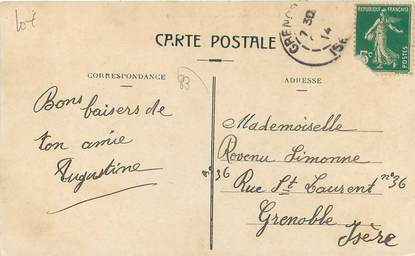 lot
CARTE POSTALE
GRENOBLE
7 30
14
ISE
REPUBLIQUE FRANÇAISE
5c
POSTES
CORRESPONDANCE
83
ADRESSE
Bons
baisers de
ton amie
Augustine
Mademoiselle
Revenu Simonne
36 Rue St Laurent n° 36
Grenoble
Isère